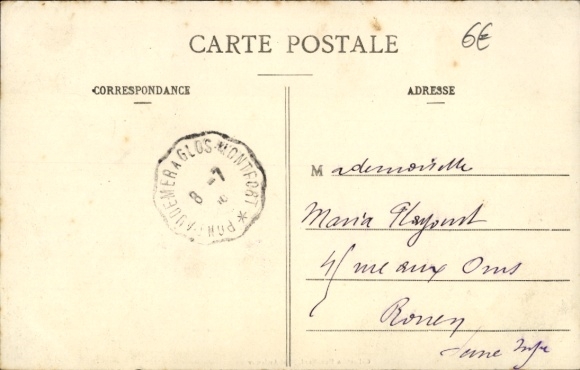 6€
CARTE POSTALE
CORRESPONDANCE
ADRESSE
PONT-AUDEMER A GLOS-MONTFORT *
8 -7
Mademoiselle
Maria
rue aux Ours
Rouen
Seine Infre